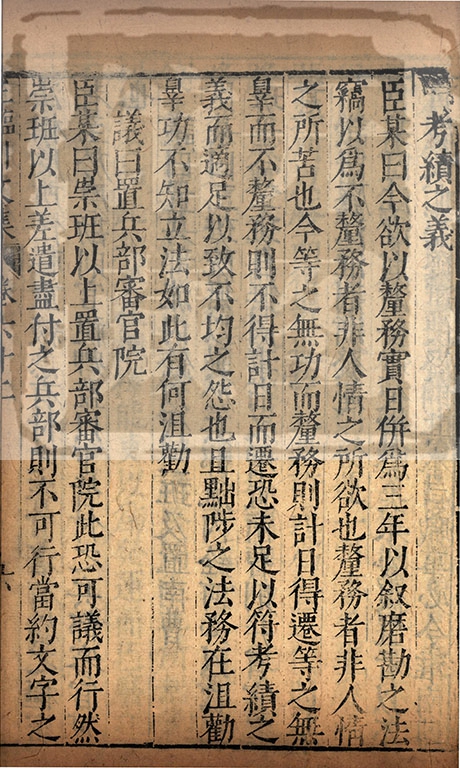 考績之義
臣某曰今欲以釐務實日併爲三年以叙磨勘之法
竊以爲不釐務者非人情之所欲也釐務者非人情
之所苦也今等之無功而釐務則計日得遷等之無
辠而不釐務則不得計日而遷恐未足以符考績之
義而適足以致不均之怨也且黜陟之法務在沮勸
辠功不知立法如此有何沮勸
議曰置兵部審官院
臣某曰崇班以上置兵部審官院此恐可議而行然
崇班以上差遣盡付之兵部則不可行當約文字之